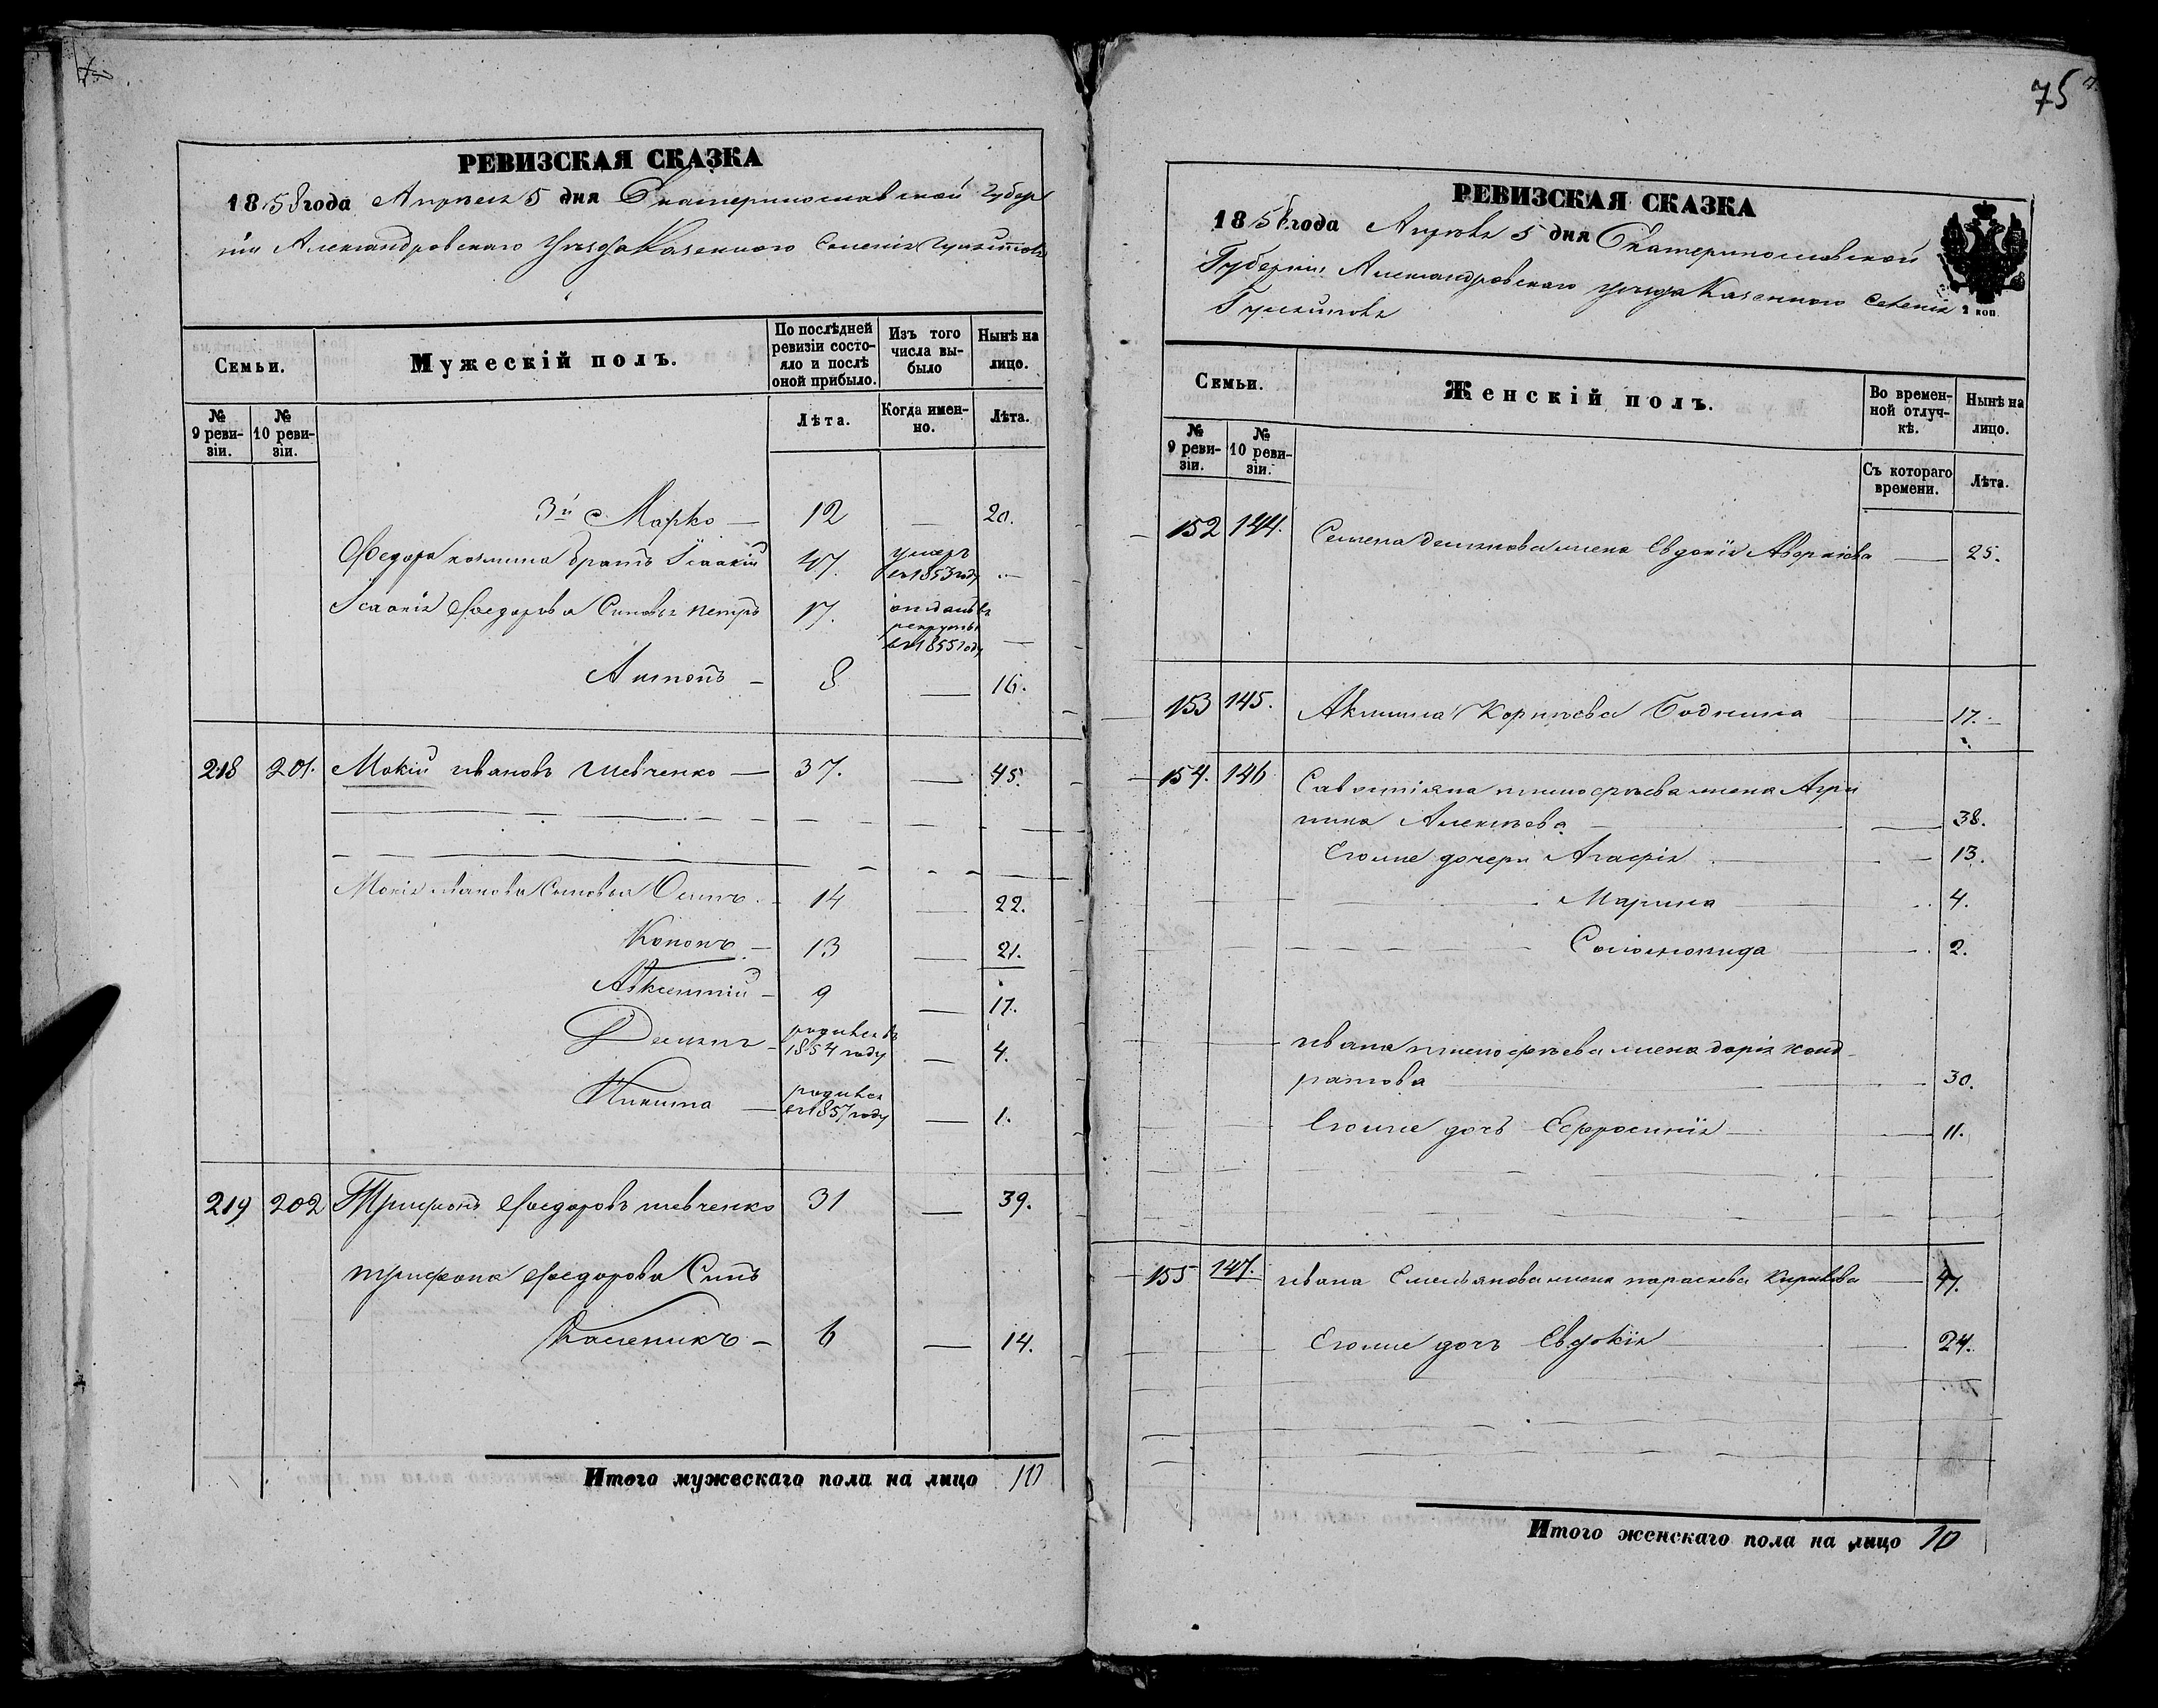 РЕВИЗСКАЯ СКАЗКА
1858 года Апреля 5 дня Екатеринославской Губер
нии Александровскаго уезда Казеннаго Селения Гуляйполя
Семьи.
Мужескій полъ.
По послѣдней ревизіи состояло и послѣ оной прибыло.
Изъ того числа выбыло
Нынѣ на лицо.
№ 9 ревизіи.
№ 10 ревизіи.
Лѣта.
Когда именно.
Лѣта.
3й Марко — 12 — 20.
Федора козмина братъ Ісаакій 47. умеръ въ 1853 году —
Ісаакія Федорова Сыновья петръ 17. отданъ въ рекруты въ 1855 году —
Антонъ — 8 — 16.
218 201. Мокій ивановъ Шевченко — 37. — 45.
Мокія иванова Сыновья Осипъ. 14 — 22.
Кононъ — 13 — 21.
Авксентий — 9 — 17.
Демянъ — родился въ 1854 году — 4.
Никита — родился въ 1857 году — 1.
219 202 Трифонъ Федоровъ шевченко 31 — 39.
трифона Федорова Сынъ
Каленикъ — 6 — 14.
Итого мужескаго пола на лицо 10
75
РЕВИЗСКАЯ СКАЗКА
1858 года Апреля 5 дня Екатеринославской
Губернии Александровскаго уезда Казеннаго Селения
Гуляйполя
2 коп.
Семьи.
Женскій полъ.
Во временной отлучкѣ.
Нынѣ на лицо.
№ 9 ревизіи.
№ 10 ревизіи.
Съ котораго времени.
Лѣта.
152 144. Семена демянова жена Евдокія Аверкіева — 25.
153 145. Акилина Корнѣева Боднина — 17.
154. 146 Савостіяна тимофѣева жена Агри
пина Алексѣева — 38.
Егоже дочери Агафія — 13.
Марина — 4.
Соломонида — 2.
ивана тимофѣева жена дарія конд
ратова — 30.
Егоже дочь Ефросинія — 11.
155 147. ивана Емельянова жена параскева Кирилова — 47.
Егоже дочь Евдокія — 24.
Итого женскаго пола на лицо 10